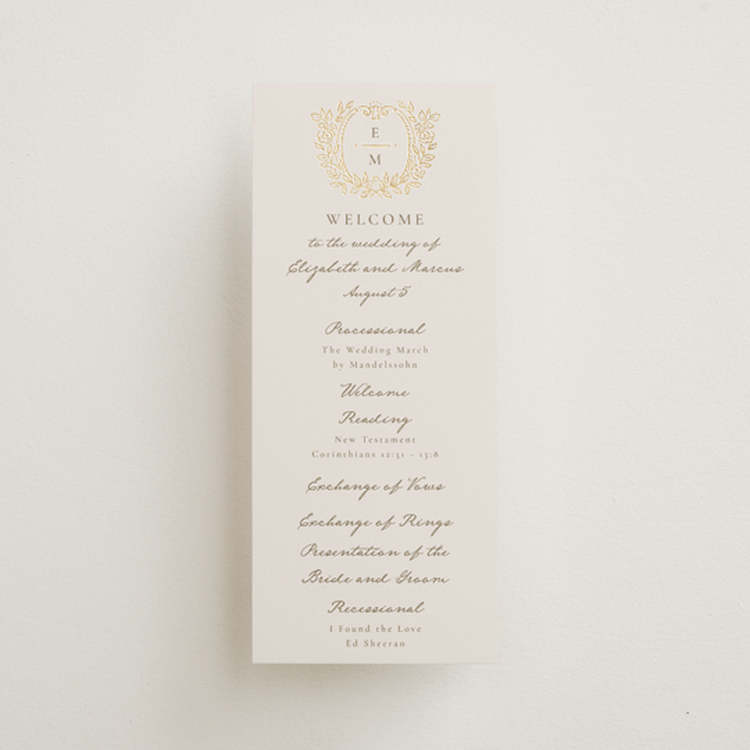 E
M
WELCOME
to the wedding of
Elizabeth and Marcus
August 5
Processional
The Wedding March
by Mandelssohn
Welcome
Reading
New Testament
Corinthians 12:31 - 13:8
Exchange of Vows
Exchange of Rings
Presentation of the
Bride and Groom
Recessional
I Found the Love
Ed Sheeran